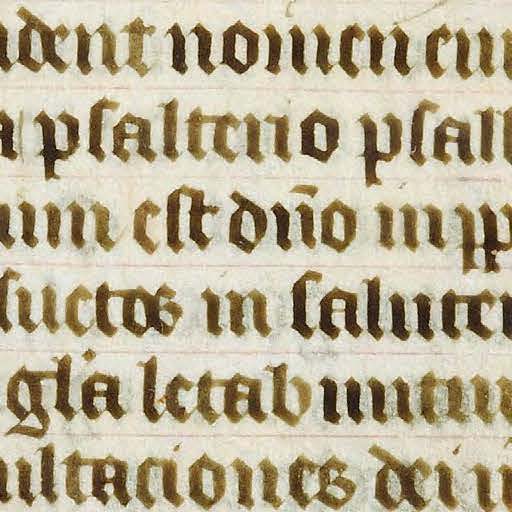 udent nomen eiu
psalterio psall
um est dño in pp
suetos in saluten
gl'a letabuntur
ultationes dei i